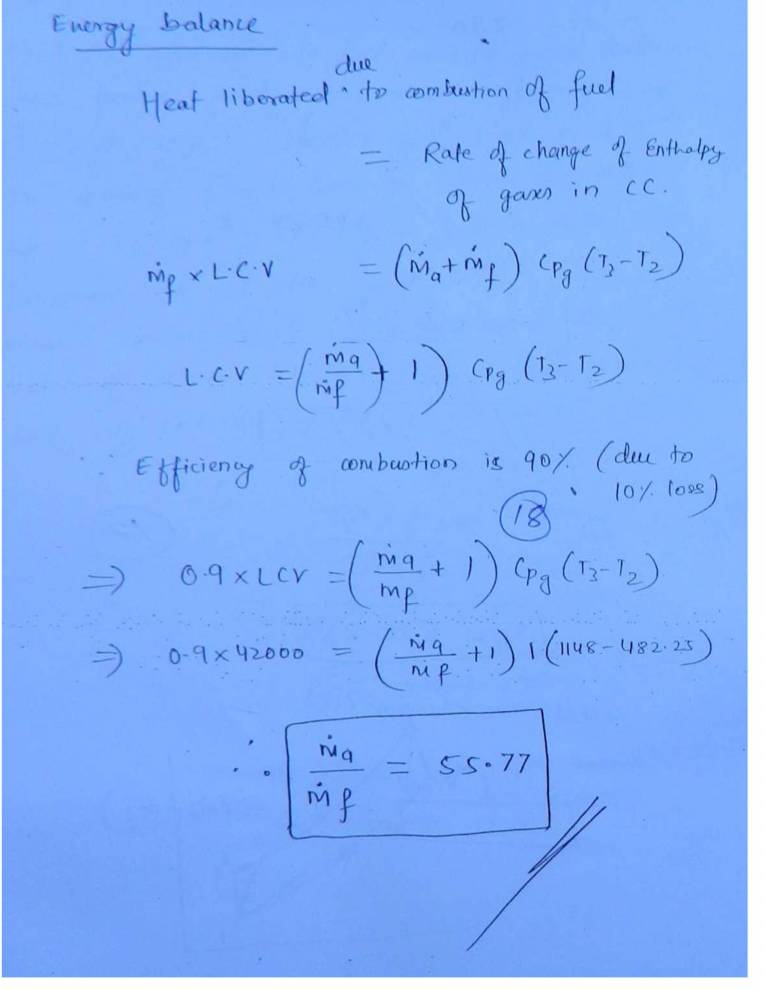 Energy balance
due
Heat liberated to combustion of fuel
= Rate of change of Enthalpy
of gases in CC.
ṁf × L.C.V = (ṁa + ṁf) Cpg (T3 - T2)
L.C.V = (ṁa/ṁf) + 1) Cpg (T3 - T2)
∵ Efficiency of combustion is 90% (due to
10% loss)
18
⇒ 0.9 × LCV = (ṁa/mf + 1) Cpg (T3 - T2)
⇒ 0.9 × 42000 = (ṁa/ṁf + 1) 1 (1148 - 482.25)
∴ ṁa/ṁf = 55.77